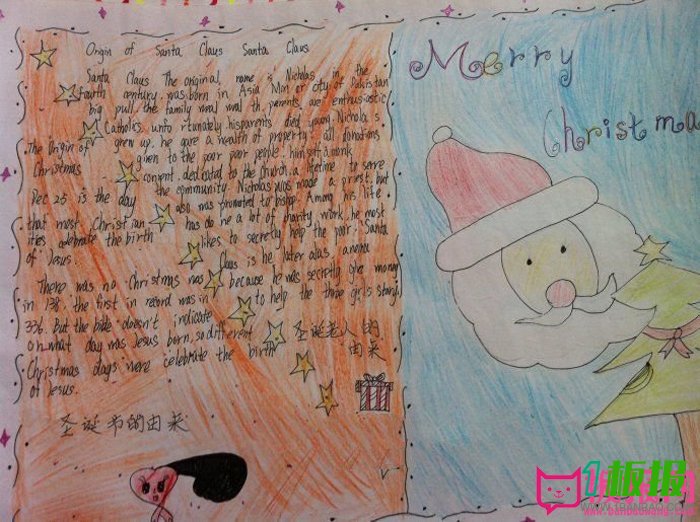 Origin of Santa Claus Santa Claus
Santa Claus The original, name is Nicholas, in the
fourth century. was born in Asia Mon or city of Pakistan
big pull, the family
th parents are enthusiastic
Catholics. unfo rtunately hisparents died young. Nichola s
grew up, he gave a wealth of property all donations
given to the poor poor people. himself a monk
convent. dedicated to the church, a lifetime to serve
the community. Nicholas was made a priest, but
also was promoted to bishop. Among his life.
has do ne a lot of charity work, he most
likes to secretly help the poor. Santa
Claus is he later alas,
because he was secretly give money
to help the three girls story.
圣诞老人的
由来
The Origin of
Christmas
Dec 25 is the day
that most Christ ian
ities celebrate the birth
of Jesus.
There was no Christmas
in 138. the first in record was in
336. But the bible doesn't indicate
on what day was Jesus born, so different
Christmas days were celebrate the birth
of Jesus.
圣诞节的由来
Merry
Christma
1板报
WWW.1BANBAO.COM